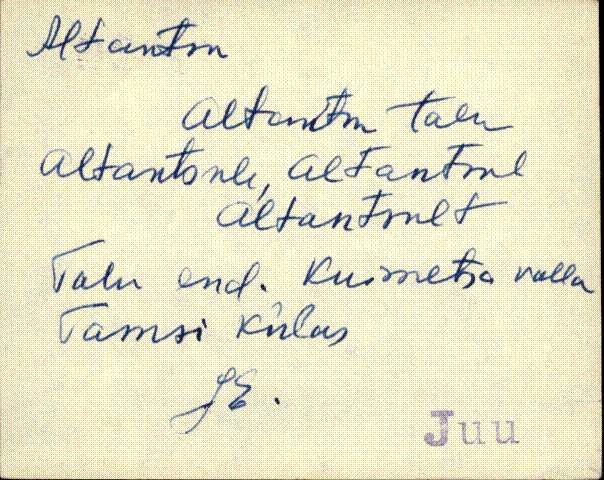 Altanton
Altanton talu
Altantonle, Altantonel
Altantonelt
Talu end. Kuimetsa valla
Tamsi külas
Juu